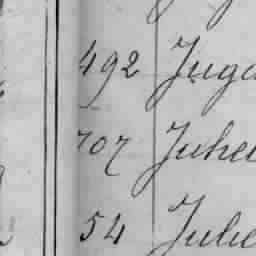 492 Juga
707 Juhe
54 Jule